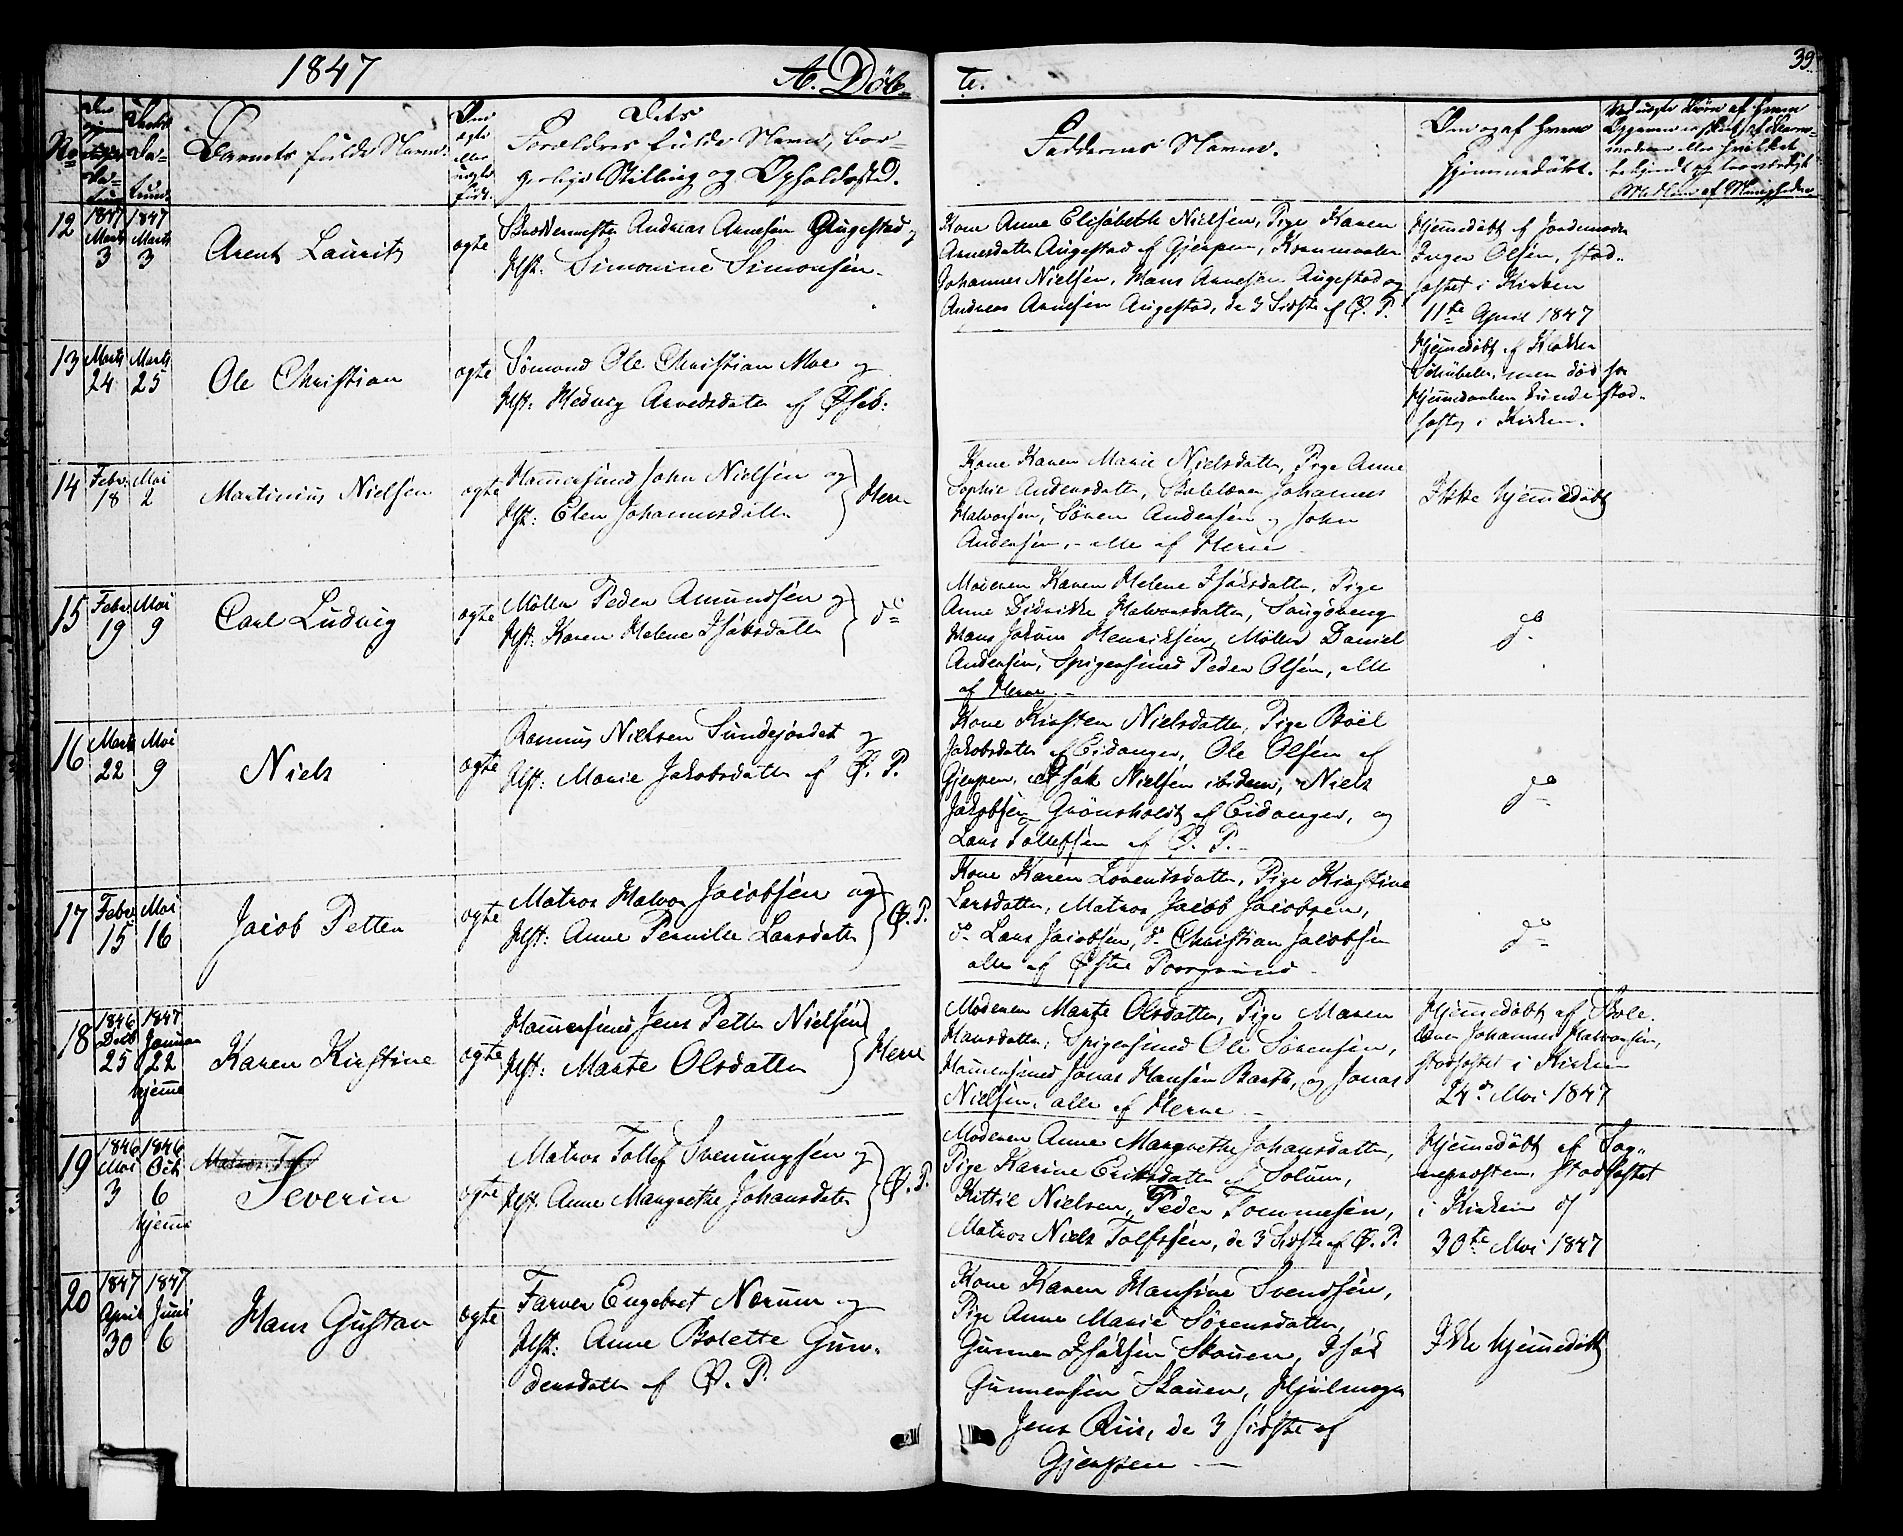 1847
A. Döb-
te.
39.
No
Barnets fulde Navn.
Dets
Forældres fulde Navn, bor-
gerlige Stilling og Opholdssted.
Faddernes Navne.
Om og af hvem
hjemmedöbt.
12
1847
Marts
3
1847
Marts
3
Arent Laurits
ægte
Skræddermester Andreas Arnesen Augestad og
Hst: Simonine Simonsen.
Kone Anne Elisabeth Nielsen, Pige Karen
Arnesdatter Augestad af Gjerpen, Kornmaaler
Johannes Nielsen, Hans Arnesen Augestad og
Andreas Arnesen Augestad, de 3 Sidste af Ø. P.
Hjemmedöbt af Jordemoder
Inger Olsen, stad-
fæstet i Kirken
11te April 1847
13
Marts
24
Marts
25
Ole Christian
ægte
Sømand Ole Christian Moe og
Hst: Hedvig Arvedsdatter af
Hjemmedöbt af Klokker
Schubeler, men död før
Hjemmedaaben kunde stad-
fæstes i Kirken.
14
Febr.
18
Mai
2
Martinius Nielsen
ægte
Hammersmed John Nielsen og
Hst: Elen Johannesdatter
Herre
Kone Karen Marie Nielsdatter, Pige Anne
Sophie Andersdatter, Skolelærer Johannes
Halvorsen, Sören Andersen og John
Andersen, - alle af Herre
Ikke hjemmedöbt
15
Febr.
19
Mai
9
Carl Ludvig
ægte
Møller Peder Amundsen og
Hst: Karen Helene Isaksdatter
do
Moderen Karen Helene Isaksdatter, Pige
Anne Didrikke Halvorsdatter, Saugdreng
Hans Jakum Henriksen, Møller Daniel
Andersen, Spigersmed Peder Olsen, alle
af Herre. -
do
16
Marts
22
Mai
9
Niels
ægte
Rasmus Nielsen Sundejordet og
Hst: Marie Jakobsdatter af Ø. P.
Kone Kirsten Nielsdatter, Pige Boël
Jakobsdatter af Eidanger, Ole Olsen af
Gjerpen, Isak Nielsen ibidem, Niels
Jakobsen Grönsholdt af Eidanger, og
Lars Tollefsen af Ø. P. -
do
17
Febr.
15
Mai
16
Jacob Petter
ægte
Matros Halvor Jacobsen og
Hst: Anne Pernille Larsdatter
Ø. P.
Kone Karen Lorentsdatter, Pige Kirstine
Larsdatter, Matros Jacob Jacobsen,
do Lars Jacobsen, do Christian Jacobsen
alle af Østre Porsgrund -
do
18
1846
Decb
25
1847
Januar
22
hjemme
Karen Kirstine
ægte
Hammersmed Jens Petter Nielsen
Hst: Marte Olsdatter
Herre
Moderen Marte Olsdatter, Pige Maren
Hansdatter, Spigersmed Ole Sørensen,
Hammersmed Jonas Hansen Barth, og Jonas
Nielsen, alle af Herre -
Hjemmedöbt af Skole-
lærer Johannes Halvorsen,
stadfæstet i Kirken
24de Mai 1847
19
1846
Mai
3
1846
Oct
6
hjemme
Severin
ægte
Matros Tollef Svenungsen og
Hst: Anne Margrethe Johansdatter
Ø. P.
Moderen Anne Margrethe Johansdatter,
Pige Karine Eriksdatter af Solum,
Kittil Nielsen, Peder Tommesen,
Matros Niels Tolfsen, de 3 Sidste af Ø. P.
Hjemmedöbt af Sog-
nepræsten, stadfæstet
i Kirken d
30te Mai 1847
20
1847
April
30
1847
Juni
6
Hans Gustav
ægte
Farver Engebret Nærum og
Hst: Anne Bolette Gun-
dersdatter af Ø. P.
Kone Karen Hansine Svendsen,
Pige Anne Marie Sörensdatter,
Gunner Isaksen Skauen, Isak
Gunnersen Skauen, Hjulmager
Jens Riis, de 3 sidste af
Gjerpen -
Ikke hjemmedöbt